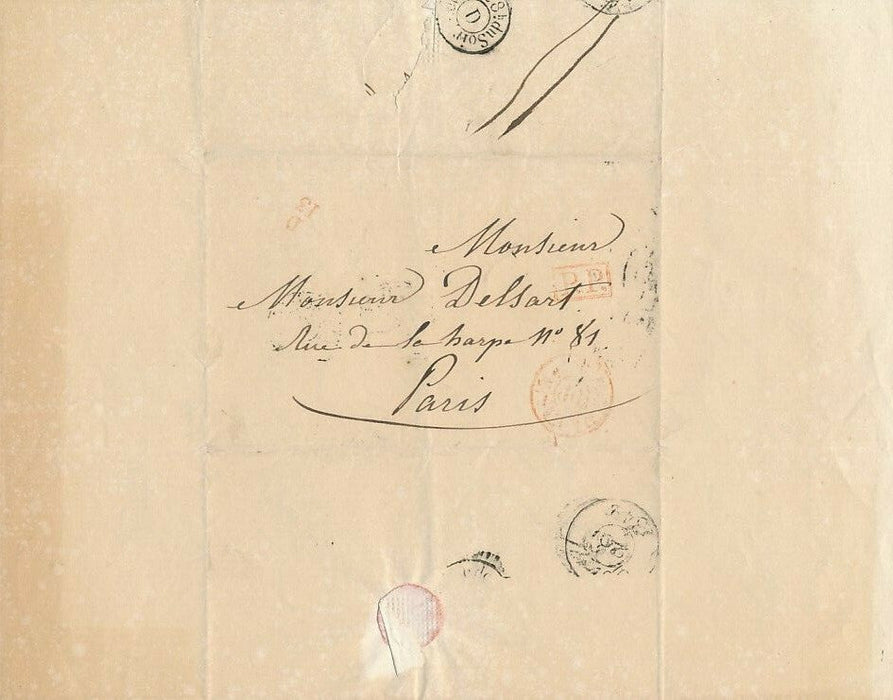 D
du Soir
Monsieur
Monsieur Delsart
P.P.
Rue de la harpe N° 81
Paris